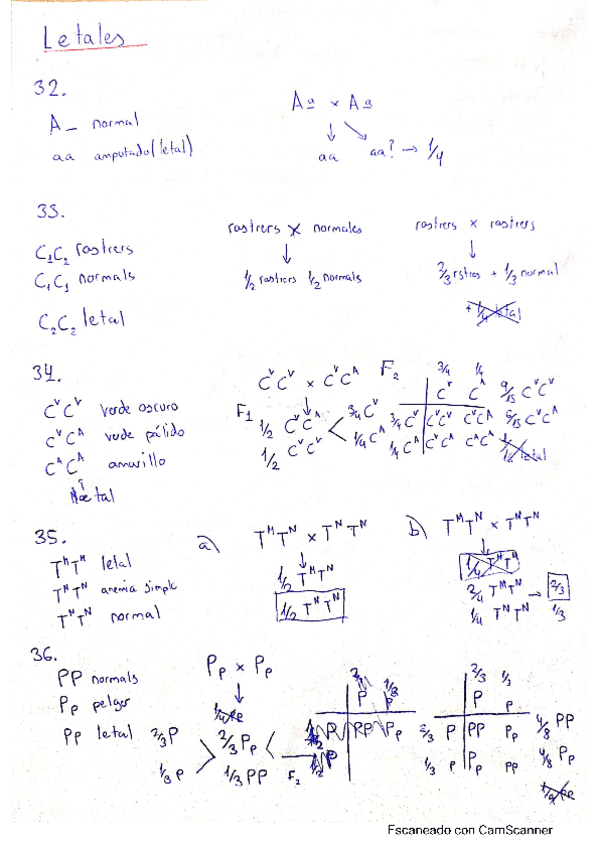 Letales
32.
A_ normal
aa amputado (letal)
Aa × Aa
aa aa? → 1/4
33.
C₁C₂ rastrers
C₁C₁ normals
C₂C₂ letal
rastrers × normales
1/2 rastrers 1/2 normals
rastrers × rastrers
2/3 rstres + 1/3 normal
+ 1/4 letal
34.
CᵛCᵛ verde oscuro
CᵛCᴬ verde pálido
CᴬCᴬ amarillo
CᵛCᵛ × CᵛCᴬ
F1 1/2 CᵛCᴬ
1/2 CᵛCᵛ
3/4 Cᵛ
1/4 Cᴬ
F2
3/4 1/4
Cᵛ Cᴬ
3/4 Cᵛ CᵛCᵛ CᵛCᴬ
1/4 Cᴬ CᵛCᴬ CᴬCᴬ
9/15 CᵛCᵛ
6/15 CᵛCᴬ
letal
35.
TᴹTᴹ letal
TᴹTᴺ anemia simple
TᴺTᴺ normal
a) TᴹTᴺ × TᴺTᴺ
1/2 TᴹTᴺ
1/2 TᴺTᴺ
b) TᴹTᴺ × TᴹTᴺ
1/4 TᴹTᴹ
2/4 TᴹTᴺ → 2/3
1/4 TᴺTᴺ 1/3
36.
PP normals
Pp pelger
pp letal
Pp × Pp
2/3 Pp
1/3 PP
2/3 P
1/3 p
F2
P p
2/3 1/3
P p
2/3 P PP Pp
1/3 p Pp pp
4/8 PP
4/8 Pp
Escaneado con CamScanner